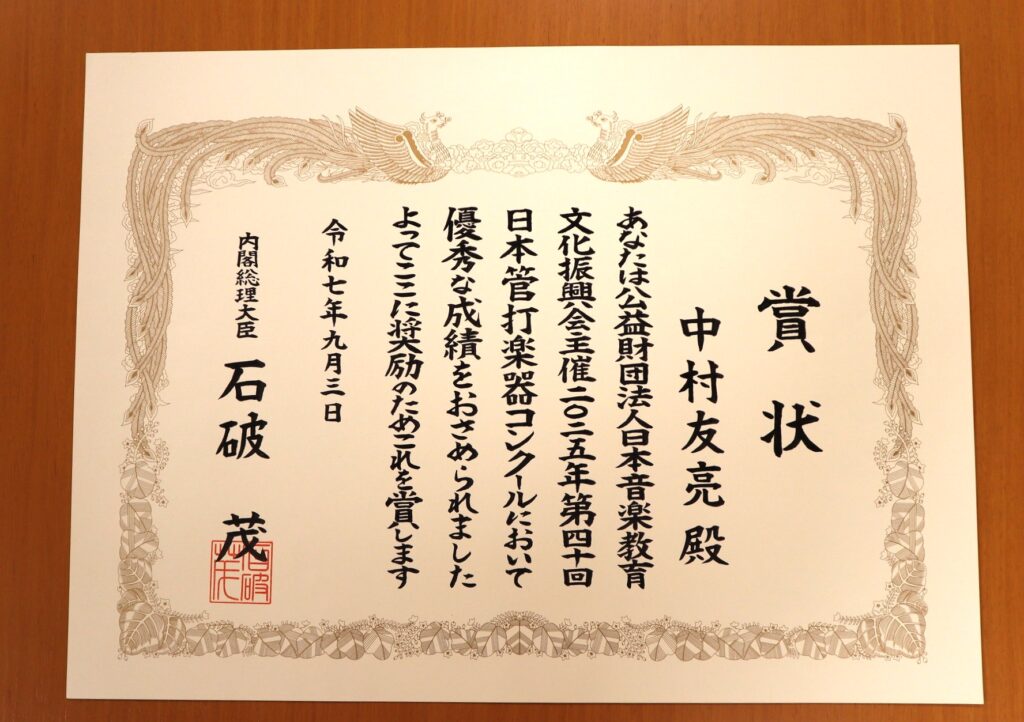 賞状
中村友亮殿
あなたは公益財団法人日本音楽教育
文化振興会主催二〇二五年第四十回
日本管打楽器コンクールにおいて
優秀な成績をおさめられました
よってここに奨励のためこれを賞します
令和七年九月三日
内閣総理大臣 石破 茂
石破茂